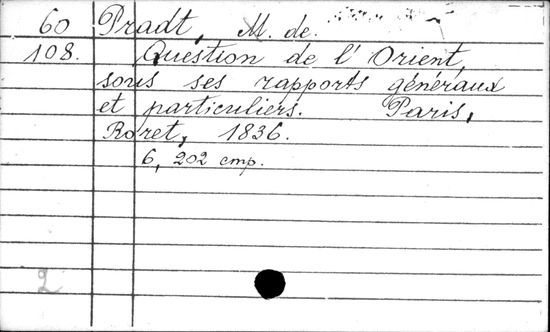 60 Pradt, M. de.
108. Question de l'Orient,
sous ses rapports généraux
et particuliers. Paris,
Roret, 1836.
6, 202 стр.
2